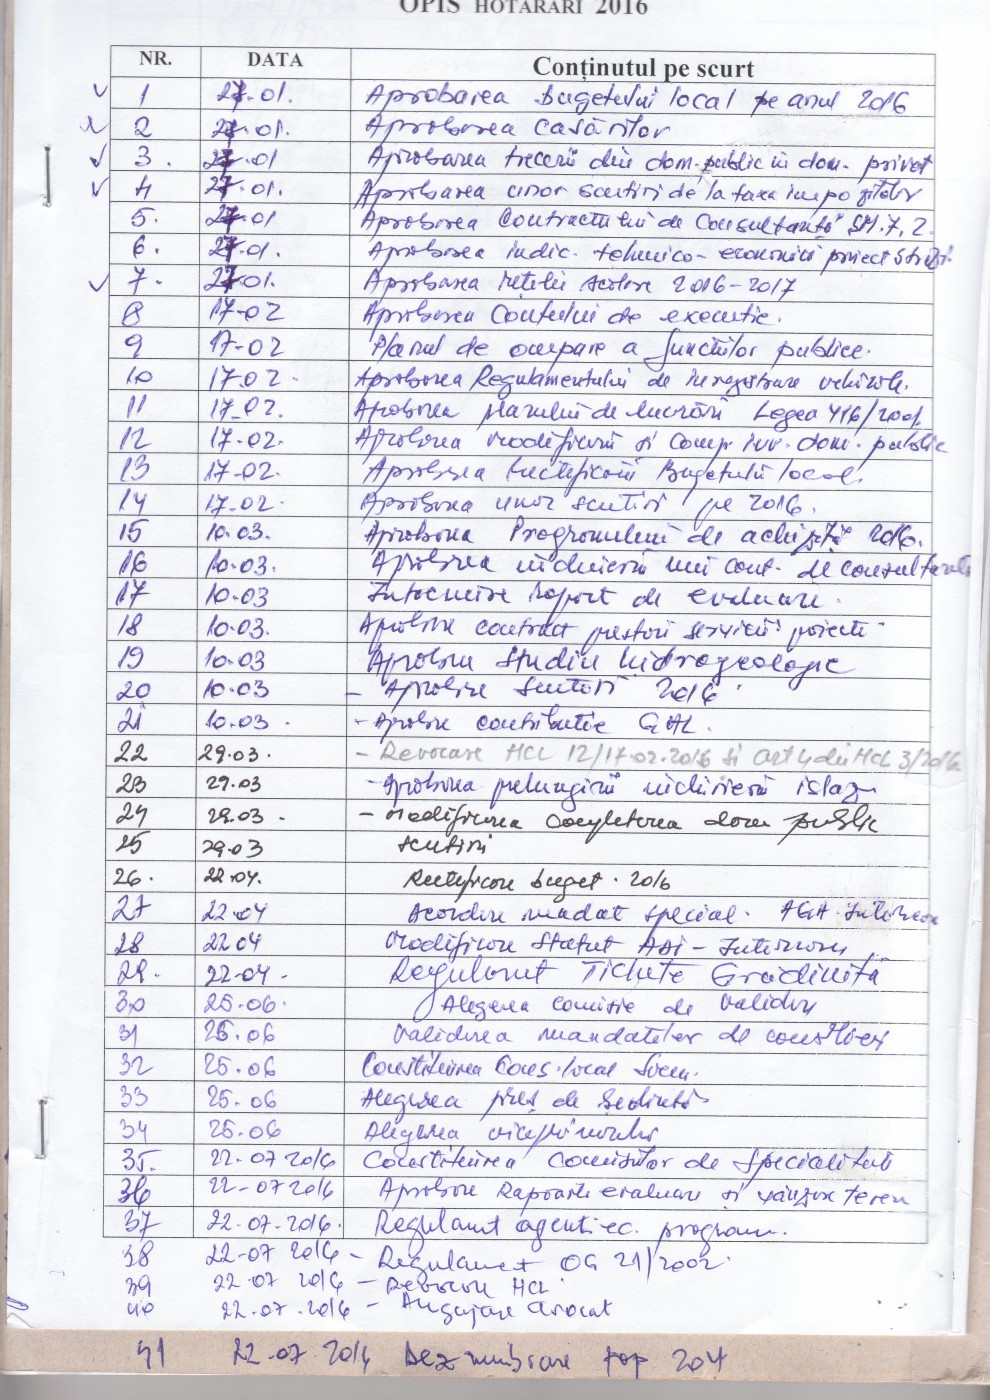 OPIS HOTARARI 2016
NR. DATA Conținutul pe scurt
1 27.01. Aprobarea Bugetului local pe anul 2016
2 27.01. Aprobarea casărilor
3. 27.01 Aprobarea trecerii din dom. public in dom. privat
4 27.01. Aprobarea unor scutiri de la taxa impozitelor
5. 27.01 Aprobarea Contractului de Consultanță
6. 27.01. Aprobarea indic. tehnico-economici proiect
7. 27.01. Aprobarea rețelei scolare 2016-2017
8 17-02 Aprobarea Contului de executie.
9 17-02 Planul de ocupare a funcțiilor publice.
10 17.02. Aprobarea Regulamentului de inregistrare vehicule.
11 17.02. Aprobarea planului de lucrări Legea 416/2001
12 17-02. Aprobarea modificarii si comp. inv. dom. public
13 17-02. Aprobarea rectificarii Bugetului local.
14 17-02. Aprobarea unor scutiri pe 2016.
15 10.03. Aprobarea Programului de achiziții 2016.
16 10.03. Aprobarea incheierii unui cont. de consultanta
17 10.03 Intocmire Raport de evaluare.
18 10.03. Aprobare contract prestari servicii proiecte
19 10.03 Aprobare Studiu hidrogeologic
20 10.03 - Aprobare Scutiri 2016
21 10.03. - Aprobare contributie GAL.
22 29.03. - Revocare HCL 12/17.02.2016 si art 4 din HCL 3/2016
23 29.03 - Aprobarea prelungirii inchirierii islaz
24 29.03. - Modificarea Completarea dom public
25 29.03 scutiri
26. 22.04. Rectificare buget. 2016
27 22.04 Acordare mandat special. AGA
28 22 04 Modificare Statut ADI -
29. 22.04. Regulament Tichete Gradinita
30 25.06. Alegerea comisie de validare
31 25.06 Validarea mandatelor de consilieri
32 25.06 Constituirea Cons. local
33 25.06 Alegerea preș de Sedintă
34 25.06 Alegerea viceprimarului
35. 22.07 2016 Constituirea Comisiilor de Specialitate
36 22-07 2016 Aprobare Rapoarte evaluare si vânzare teren
37 22.07.2016. Regulament agenti ec. program.
38 22-07 2016 - Regulament OG 21/2002.
39 22.07 2016 - Revocare HCL
40 22.07.2016 - Angajare avocat
41 22.07.2016 Dezmembrare top 204